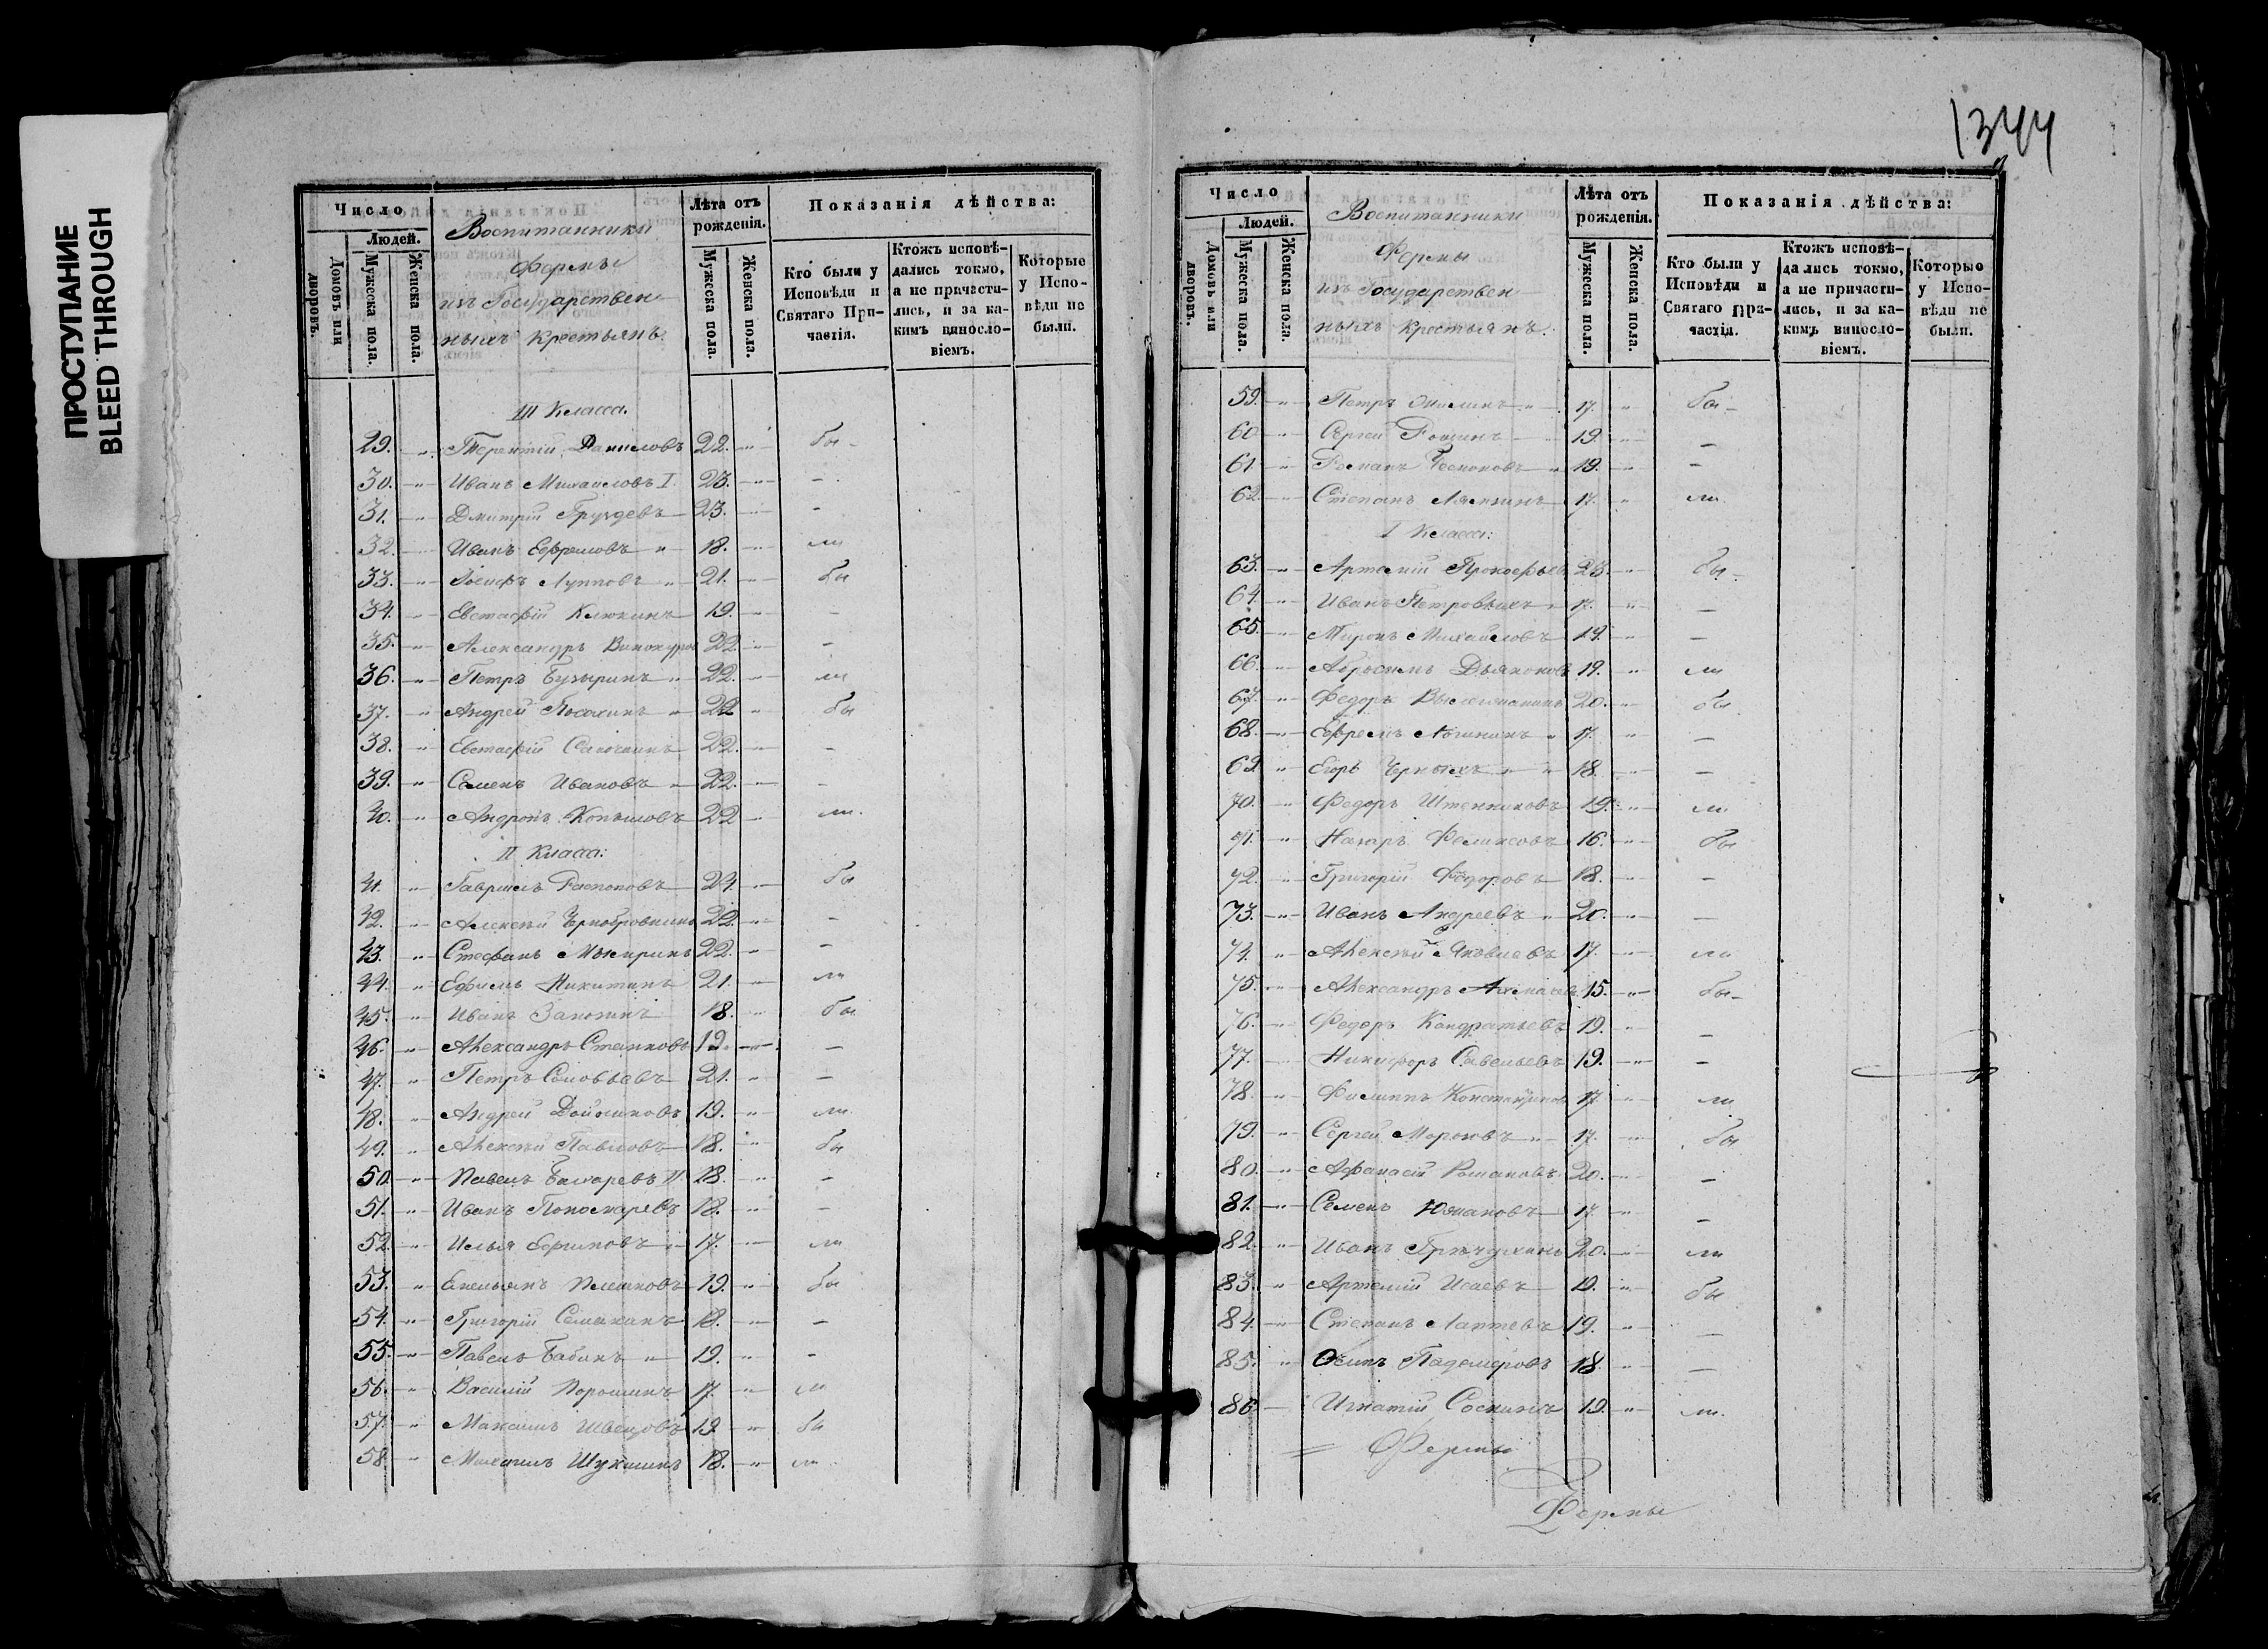 ПРОСТУПАНИЕ
BLEED THROUGH
1344
Число
Людей.
Домовъ или дворовъ.
Мужеска пола.
Женска пола.
Воспитанники
Фермы
изъ Государствен
ныхъ крестьянъ.
Лѣта отъ рожденія.
Мужеска пола.
Женска пола.
Показанія дѣйства:
Кто были у Исповѣди и Святаго Причастія.
Ктожъ исповѣдались токмо, а не причастились, и за какимъ винословіемъ.
Которые у Исповѣди не были.
III Класса.
29. " Терентій Даниловъ 22. " бы -
30. " Иванъ Михайловъ I. 23. " -
31. " Дмитрій Груздевъ 23. " -
32. " Иванъ Ефремовъ " 18. " ли
33. " Іосифъ Лупповъ " 21. " бы
34. " Евстафій Клюкинъ 19. " -
35. " Александръ 22. " -
36. " Петръ Бузыринъ " 22. " ли
37. " Андрей " 22 " бы
38. " Евстафій 22. " -
39. " Семенъ Ивановъ " 22. " -
40. " Андронъ Копыловъ 22 " ли.
II Класса:
41. " Гавріилъ Распоповъ 24. " бы
42. " Алексѣй 22. " -
43. " Стефанъ 22. " -
44. " Ефимъ Никитинъ 21. " ли
45. " Иванъ 18. " бы
46. " Александръ 19. " -
47. " Петръ Соловьевъ 21. " -
48. " Андрей Дойниковъ 19. " ли
49. " Алексѣй Павловъ 18. " бы
50. " Павелъ II. 18. " -
51. " Иванъ Пономаревъ 18. " -
52. " Илья " 17. " ли
53. " Емельянъ Плешковъ 19. " бы
54. " Григорій 18. " -
55. " Павелъ Бабинъ " 19. " -
56. " Василій Порошинъ 17. " ли
57. " Максимъ Швецовъ 19. " бы
58. " Михаилъ Шукшинъ 18. " ли
Число
Людей.
Домовъ или дворовъ.
Мужеска пола.
Женска пола.
Воспитанники
Фермы
изъ Государствен
ныхъ крестьянъ.
Лѣта отъ рожденія.
Мужеска пола.
Женска пола.
Показанія дѣйства:
Кто были у Исповѣди и Святаго Причастія.
Ктожъ исповѣдались токмо, а не причастились, и за какимъ винословіемъ.
Которые у Исповѣди не были.
59. " Петръ " 17. " бы -
60 " Сергей 19. -
61. " Романъ " 19. " -
62. " Степанъ Лямзинъ 17. " ли
I Класса:
63. " Артемій Прокофьев 23. " бы -
64. " Иванъ Петровыхъ " 17. " -
65. " Миронъ Михайловъ 19. " -
66. " Абросимъ Дьяконов 19. " ли
67. " Федоръ 20. " бы
68. " Ефремъ " 17. " -
69 " Егоръ Черныхъ " 18. " -
70. " Федоръ Штенниковъ 19. " ли
71. " Назаръ Феликсовъ 16. " бы
72. " Григорій Федоровъ 18. " -
73. " Иванъ Андреевъ " 20. " -
74. " Алексѣй Яковлевъ 17. " ли
75. " Александръ 15. " бы -
76. " Федоръ Кондратьевъ 19. " -
77. " Никифоръ Савельевъ 19. " -
78. " Филиппъ 17. " ли
79. " Сергей Морозовъ " 17. " бы
80. " Афанасій Романовъ 20. " -
81. " Семенъ Южаковъ 17. " -
82. " Иванъ 20. " ли
83. " Артемій Исаевъ 19. " бы
84. " Степанъ Лаптевъ 19. " -
85. " Осипъ 18. " -
86. Игнатій Соснинъ 19. " ли.
= Фермы
Фермы